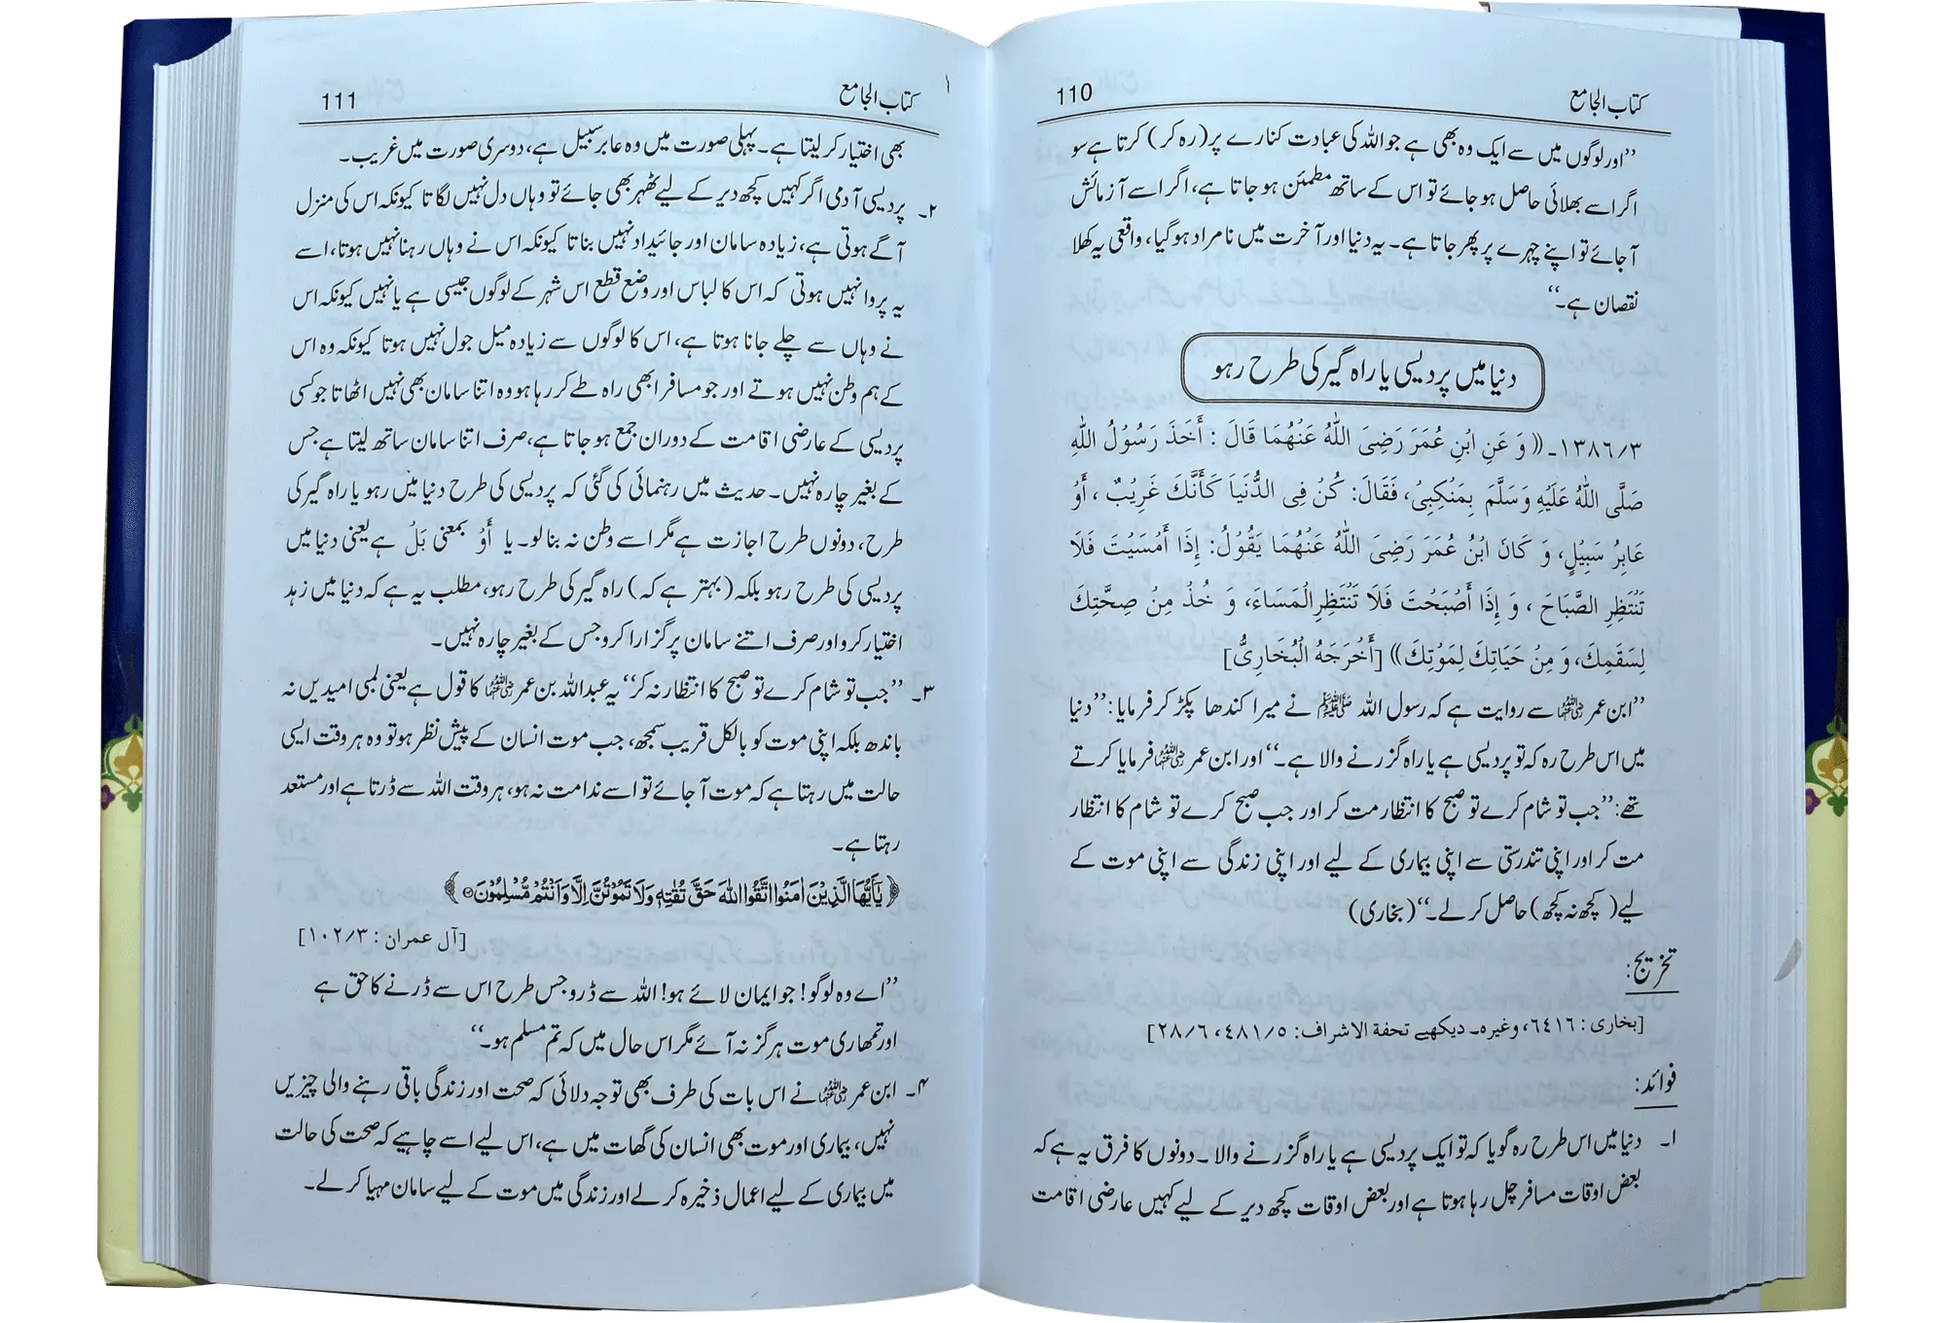 کتاب الجامع 110
’’اور لوگوں میں سے ایک وہ بھی ہے جو اللہ کی عبادت کنارے پر (رہ کر) کرتا ہے سو
اگر اسے بھلائی حاصل ہو جائے تو اس کے ساتھ مطمئن ہو جاتا ہے، اگر اسے آزمائش
آ جائے تو اپنے چہرے پر پھر جاتا ہے۔ یہ دنیا اور آخرت میں نامراد ہو گیا، واقعی یہ کھلا
نقصان ہے۔‘‘
دنیا میں پردیسی یا راہ گیر کی طرح رہو
۱۳۸۶/۳۔ (( وَ عَنِ ابْنِ عُمَرَ رَضِىَ اللّٰهُ عَنْهُمَا قَالَ : أَخَذَ رَسُوْلُ اللّٰهِ
صَلَّى اللّٰهُ عَلَيْهِ وَسَلَّمَ بِمَنْكِبِىْ، فَقَالَ: كُنْ فِى الدُّنْيَا كَأَنَّكَ غَرِيْبٌ ، أَوْ
عَابِرُ سَبِيْلٍ، وَ كَانَ ابْنُ عُمَرَ رَضِىَ اللّٰهُ عَنْهُمَا يَقُوْلُ: إِذَا أَمْسَيْتَ فَلَا
تَنْتَظِرِ الصَّبَاحَ ، وَ إِذَا أَصْبَحْتَ فَلَا تَنْتَظِرِ الْمَسَاءَ، وَ خُذْ مِنْ صِحَّتِكَ
لِسَقَمِكَ، وَ مِنْ حَيَاتِكَ لِمَوْتِكَ)) [أَخْرَجَهُ الْبُخَارِىُّ]
’’ابن عمر رضی اللہ عنہما سے روایت ہے کہ رسول اللہ ﷺ نے میرا کندھا پکڑ کر فرمایا: ’’دنیا
میں اس طرح رہ کہ تو پردیسی ہے یا راہ گزرنے والا ہے۔‘‘ اور ابن عمر رضی اللہ عنہما فرمایا کرتے
تھے: ’’جب تو شام کرے تو صبح کا انتظار مت کر اور جب صبح کرے تو شام کا انتظار
مت کر اور اپنی تندرستی سے اپنی بیماری کے لیے اور اپنی زندگی سے اپنی موت کے
لیے (کچھ نہ کچھ) حاصل کر لے۔‘‘ (بخاری)
تخریج:
[بخاری : ۶۴۱۶، وغیرہ۔ دیکھیے تحفة الاشراف: ۴۸۱/۵، ۲۸/۶]
فوائد:
۱۔ دنیا میں اس طرح رہ گویا کہ تو ایک پردیسی ہے یا راہ گزرنے والا۔ دونوں کا فرق یہ ہے کہ
بعض اوقات مسافر چل رہا ہوتا ہے اور بعض اوقات کچھ دیر کے لیے کہیں عارضی اقامت
کتاب الجامع 111
بھی اختیار کر لیتا ہے۔ پہلی صورت میں وہ عابر سبیل ہے، دوسری صورت میں غریب۔
۲۔ پردیسی آدمی اگر کہیں کچھ دیر کے لیے ٹھہر بھی جائے تو وہاں دل نہیں لگاتا کیونکہ اس کی منزل
آگے ہوتی ہے، زیادہ سامان اور جائیداد نہیں بناتا کیونکہ اس نے وہاں رہنا نہیں ہوتا، اسے
یہ پروا نہیں ہوتی کہ اس کا لباس اور وضع قطع اس شہر کے لوگوں جیسی ہے یا نہیں کیونکہ اس
نے وہاں سے چلے جانا ہوتا ہے، اس کا لوگوں سے زیادہ میل جول نہیں ہوتا کیونکہ وہ اس
کے ہم وطن نہیں ہوتے اور جو مسافر ابھی راہ طے کر رہا ہو وہ اتنا سامان بھی نہیں اٹھاتا جو کسی
پردیسی کے عارضی اقامت کے دوران جمع ہو جاتا ہے، صرف اتنا سامان ساتھ لیتا ہے جس
کے بغیر چارہ نہیں۔ حدیث میں رہنمائی کی گئی کہ پردیسی کی طرح دنیا میں رہو یا راہ گیر کی
طرح، دونوں طرح اجازت ہے مگر اسے وطن نہ بنا لو۔ یا أَوْ بمعنی بَلْ ہے یعنی دنیا میں
پردیسی کی طرح رہو بلکہ (بہتر ہے کہ) راہ گیر کی طرح رہو، مطلب یہ ہے کہ دنیا میں زہد
اختیار کرو اور صرف اتنے سامان پر گزارا کرو جس کے بغیر چارہ نہیں۔
۳۔ ’’جب تو شام کرے تو صبح کا انتظار نہ کر‘‘ یہ عبداللہ بن عمر رضی اللہ عنہما کا قول ہے یعنی لمبی امیدیں نہ
باندھ بلکہ اپنی موت کو بالکل قریب سمجھ، جب موت انسان کے پیش نظر ہو تو وہ ہر وقت ایسی
حالت میں رہتا ہے کہ موت آ جائے تو اسے ندامت نہ ہو، ہر وقت اللہ سے ڈرتا ہے اور مستعد
رہتا ہے۔
﴿يٰۤاَيُّهَا الَّذِيْنَ اٰمَنُوا اتَّقُوا اللّٰهَ حَقَّ تُقٰتِهٖ وَلَا تَمُوْتُنَّ اِلَّا وَاَنْتُمْ مُّسْلِمُوْنَ﴾
[آل عمران : ۱۰۲/۳]
’’اے وہ لوگو! جو ایمان لائے ہو! اللہ سے ڈرو جس طرح اس سے ڈرنے کا حق ہے
اور تمھاری موت ہرگز نہ آئے مگر اس حال میں کہ تم مسلم ہو۔‘‘
۴۔ ابن عمر رضی اللہ عنہما نے اس بات کی طرف بھی توجہ دلائی کہ صحت اور زندگی باقی رہنے والی چیزیں
نہیں، بیماری اور موت بھی انسان کی گھات میں ہے، اس لیے اسے چاہیے کہ صحت کی حالت
میں بیماری کے لیے اعمال ذخیرہ کر لے اور زندگی میں موت کے لیے سامان مہیا کر لے۔